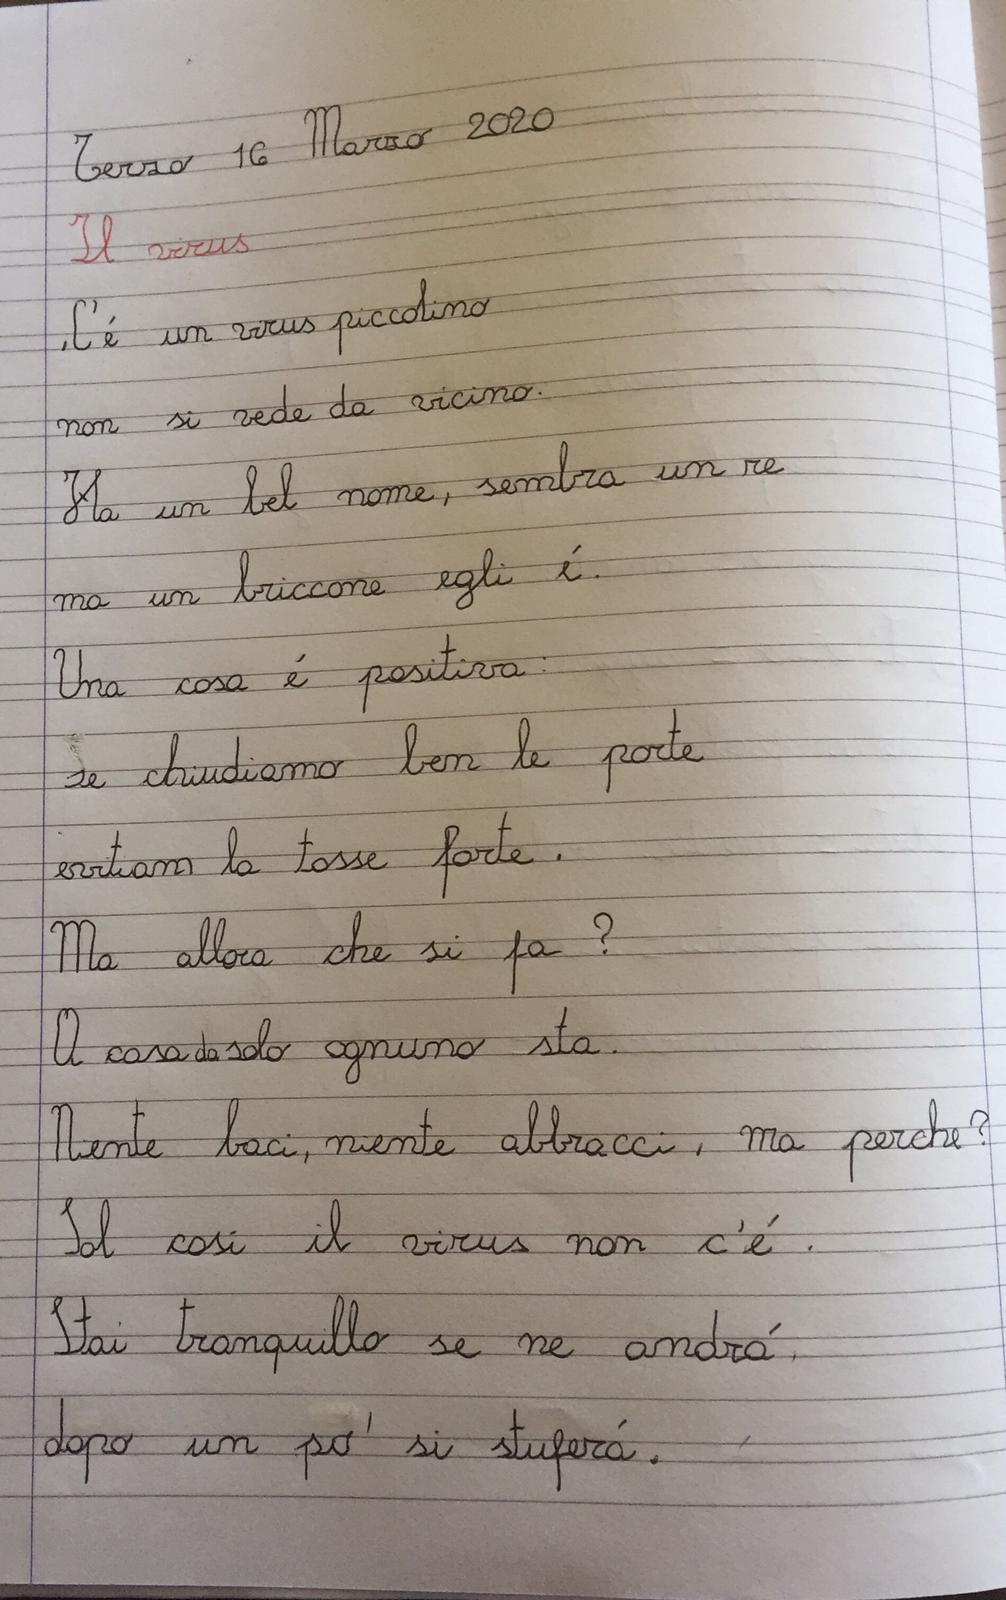 Terzo 16 Marzo 2020
Il virus
C'é un virus piccolino
non si vede da vicino.
Ha un bel nome, sembra un re
ma un briccone egli é.
Una cosa é positiva:
se chiudiamo ben le porte
evitiam la tosse forte.
Ma allora che si fa?
A casa da solo ognuno sta.
Niente baci, niente abbracci, ma perche?
Sol cosi il virus non c'é.
Stai tranquillo se ne andrá,
dopo un po' si stuferá.